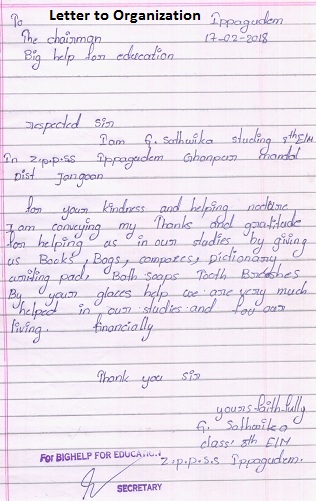 Letter to Organization
To Ippagudem
The chairman 17-02-2018
Big help for education
respected Sir
I am G. Sathwika studing 8th E/M
In z.p.p.ss Ippagudem Ghanpur mandal
Dist Jangaon
for your kindness and helping nature
I am conveying my Thanks and gratitude
for helping us in our studies by giving
us Books, Bags, compaxes, Dictionary
writing pad, Both soaps Tooth Brushes
By your glaces help we are very much
helped in our studies and for our
living. financially
Thank you sir
yours faithfully
G. Sathwika
class: 8th E/M
z.p.p.s.s Ippagudem.
For BIGHELP FOR EDUCATION
SECRETARY